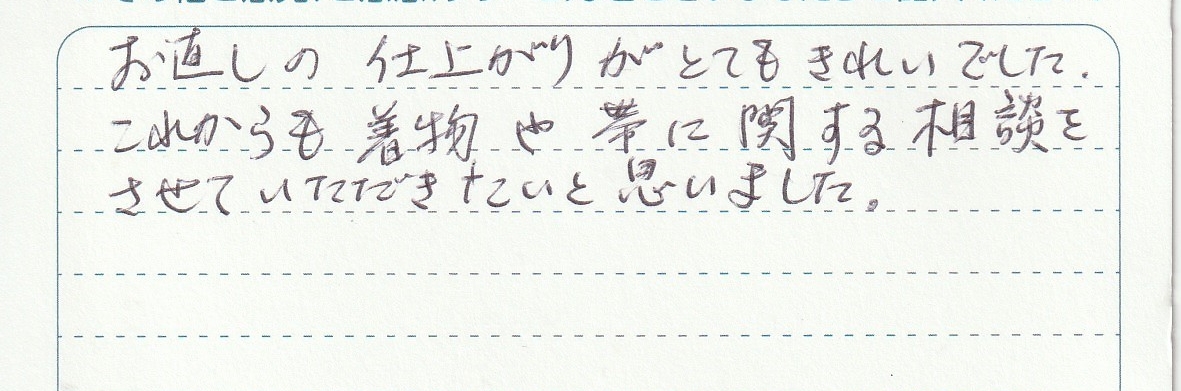 お直しの 仕上がりがとてもきれいでした.
これからも着物や帯に関する相談を
させていただきたいと思いました。